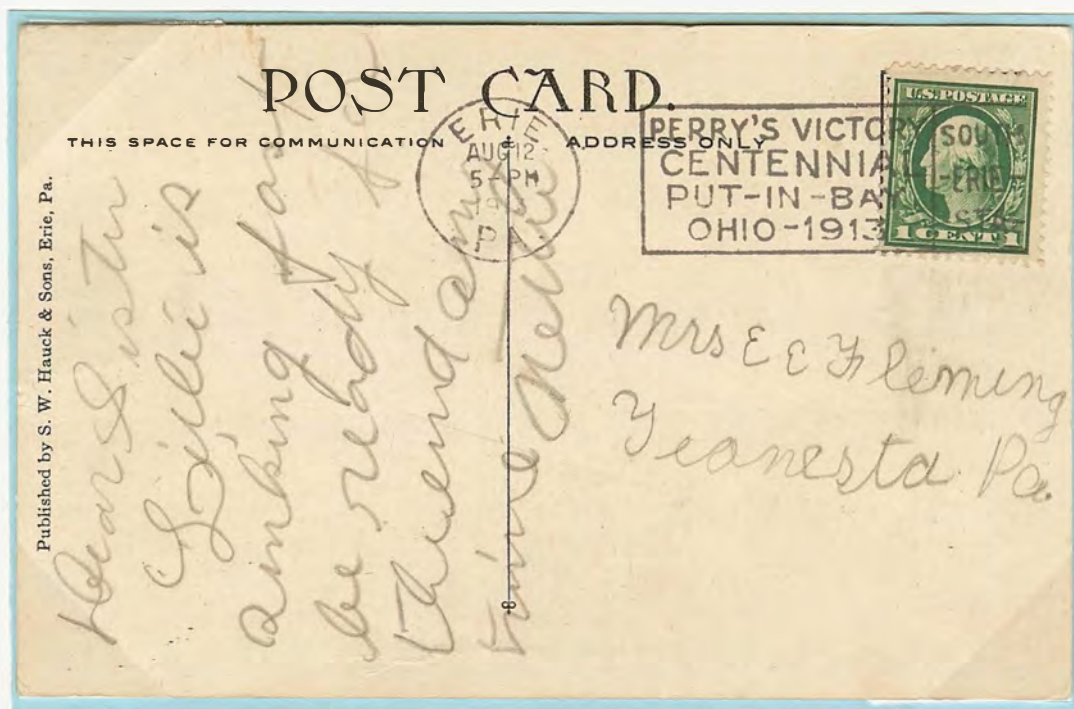 POST CARD.
THIS SPACE FOR COMMUNICATION
ADDRESS ONLY
ERIE
AUG 12
5-PM
PA
PERRY'S VICTORY
CENTENNIAL
PUT-IN-BAY
OHIO-1913
SOUTH
-ERIE-
STA-
U.S. POSTAGE
1 CENT 1
Published by S. W. Hauck & Sons, Erie, Pa.
Dear Sister
Lillie is
sinking fast
be ready for
the end any
time Nellie
Mrs E E Fleming
Teonesta Pa.